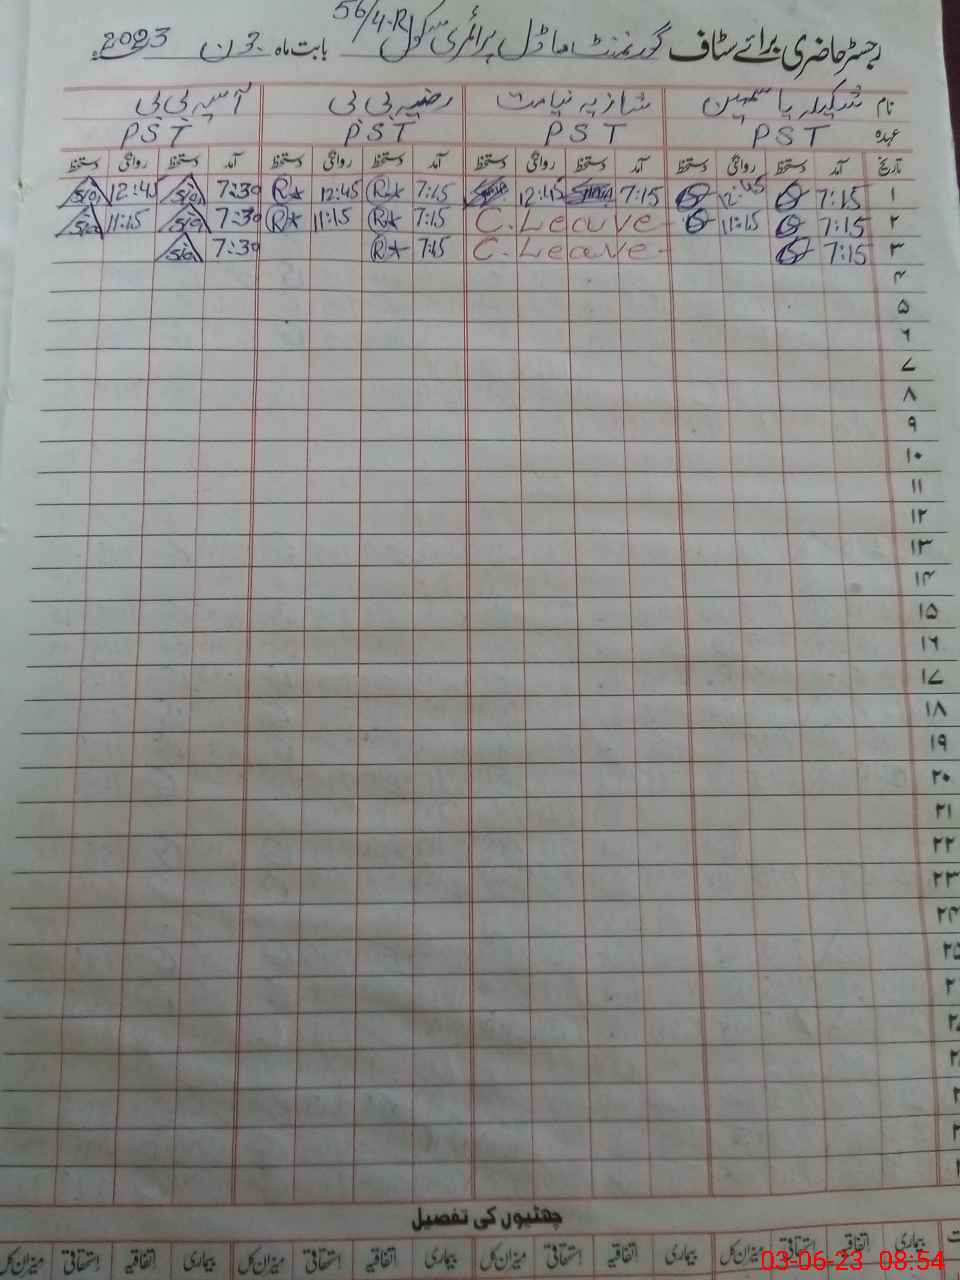 56/4-R
رجسٹر حاضری برائے سٹاف گورنمنٹ ماڈل پرائمری سکول بابت ماہ جون 2023ء
نام شکیلہ یاسمین شازیہ نیامت رضیہ بی بی آسیہ بی بی
عہدہ PST PST PST PST
تاریخ آمد دستخط روانگی دستخط آمد دستخط روانگی دستخط آمد دستخط روانگی دستخط آمد دستخط روانگی دستخط
۱ 7:15 12:45 7:15 12:45 7:15 R 12:45 R 7:30 12:45
۲ 7:15 11:15 C.Leave 7:15 R 11:15 R 7:30 11:15
۳ 7:15 C.Leave 7:15 R 7:30
۴
۵
۶
۷
۸
۹
۱۰
۱۱
۱۲
۱۳
۱۴
۱۵
۱۶
۱۷
۱۸
۱۹
۲۰
۲۱
۲۲
۲۳
۲۴
۲۵
چھٹیوں کی تفصیل
بیماری اتفاقیہ استحقاقی میزان کل بیماری اتفاقیہ استحقاقی میزان کل بیماری اتفاقیہ استحقاقی میزان کل بیماری اتفاقیہ استحقاقی میزان کل
03-06-23 08:54